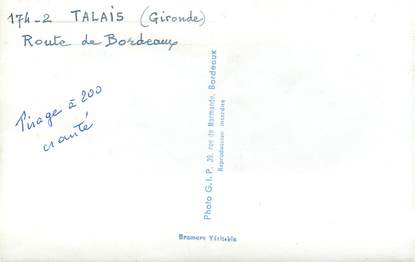 174-2 TALAIS (Gironde)
Route de Bordeaux
Tirage à 200
cranté
Photo G.I.P. 39, rue de Marmande, Bordeaux
Reproduction interdite
Bromure Véritable